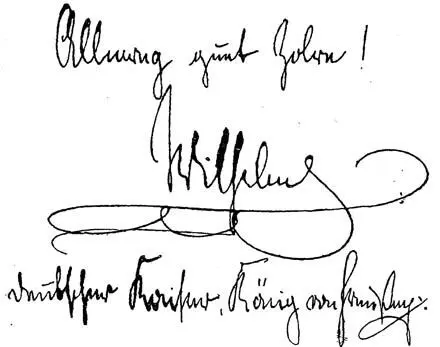 Allweg gut Zolre!
Wilhelm
deutscher Kaiser, König von Preußen.